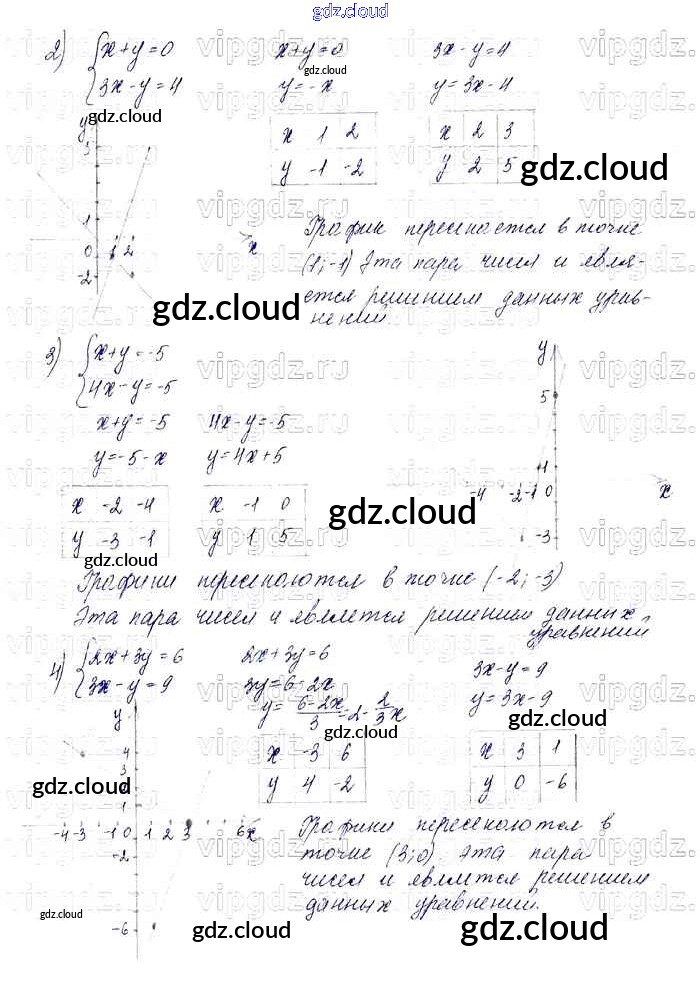 gdz.cloud
2) {x+y=0 x+y=0 3x-y=4
{3x-y=4 y=-x y=3x-4
gdz.cloud
gdz.cloud
x 1 2 x 2 3
y -1 -2 y 2 5
gdz.cloud
y
5
1
0 1 2 x
-2
График пересекается в точке
(1;-1) Эта пара чисел и явля-
ется решением данных урав-
нений
gdz.cloud
gdz.cloud
3) {x+y=-5
{4x-y=-5
x+y=-5 4x-y=-5
y=-5-x y=4x+5
x -2 -4 x -1 0
y -3 -1 y 1 5
gdz.cloud
gdz.cloud
y
5
1
-4 -2 -1 0 x
-3
Графики пересекаются в точке (-2;-3)
Эта пара чисел и является решением данных
уравнений
4) {2x+3y=6 2x+3y=6 3x-y=9
{3x-y=9 3y=6-2x y=3x-9
y=6-2x/3=2-2/3x
gdz.cloud
gdz.cloud
x -3 6 x 3 1
y 4 -2 y 0 -6
gdz.cloud
y
4
3
1
-4 -3 -1 0 1 2 3 6 x
-2
-6
Графики пересекаются в
точке (3;0). Эта пара
чисел и является решением
данных уравнений.
gdz.cloud
gdz.cloud
gdz.cloud
gdz.cloud
vipgdz.ru